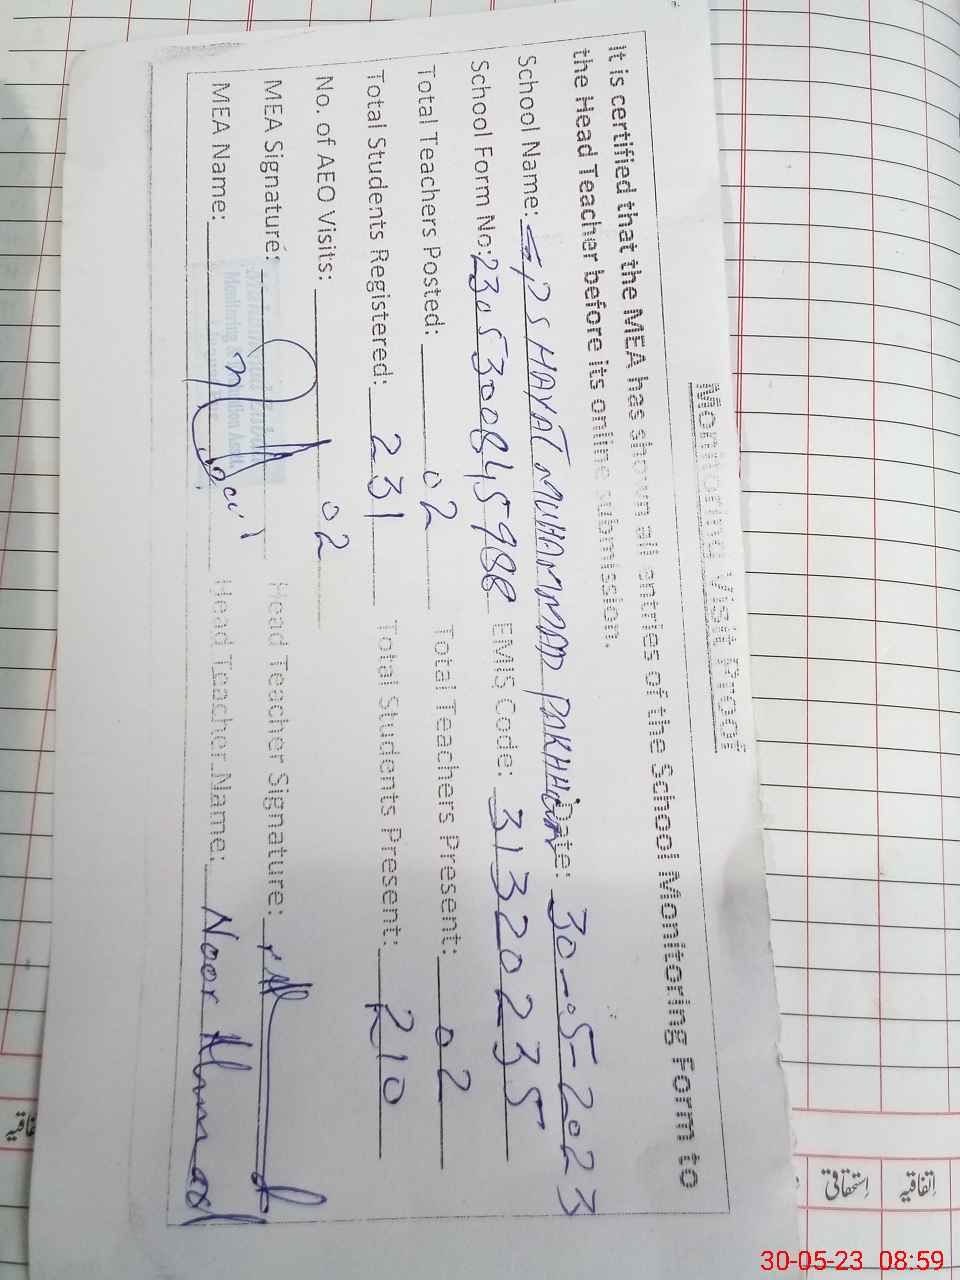 Monitoring Visit Proof
It is certified that the MEA has shown all entries of the School Monitoring Form to
the Head Teacher before its online submission.
School Name: GPS HAYAT MUHAMMAD Date: 30-05-2023
School Form No: EMIS Code: 31320235
Total Teachers Posted: 02 Total Teachers Present: 02
Total Students Registered: 231 Total Students Present: 210
No. of AEO Visits: 02
MEA Signature: Head Teacher Signature:
MEA Name: Head Teacher Name: Noor Ahmad
اتفاقیہ
استحقاقی
30-05-23 08:59